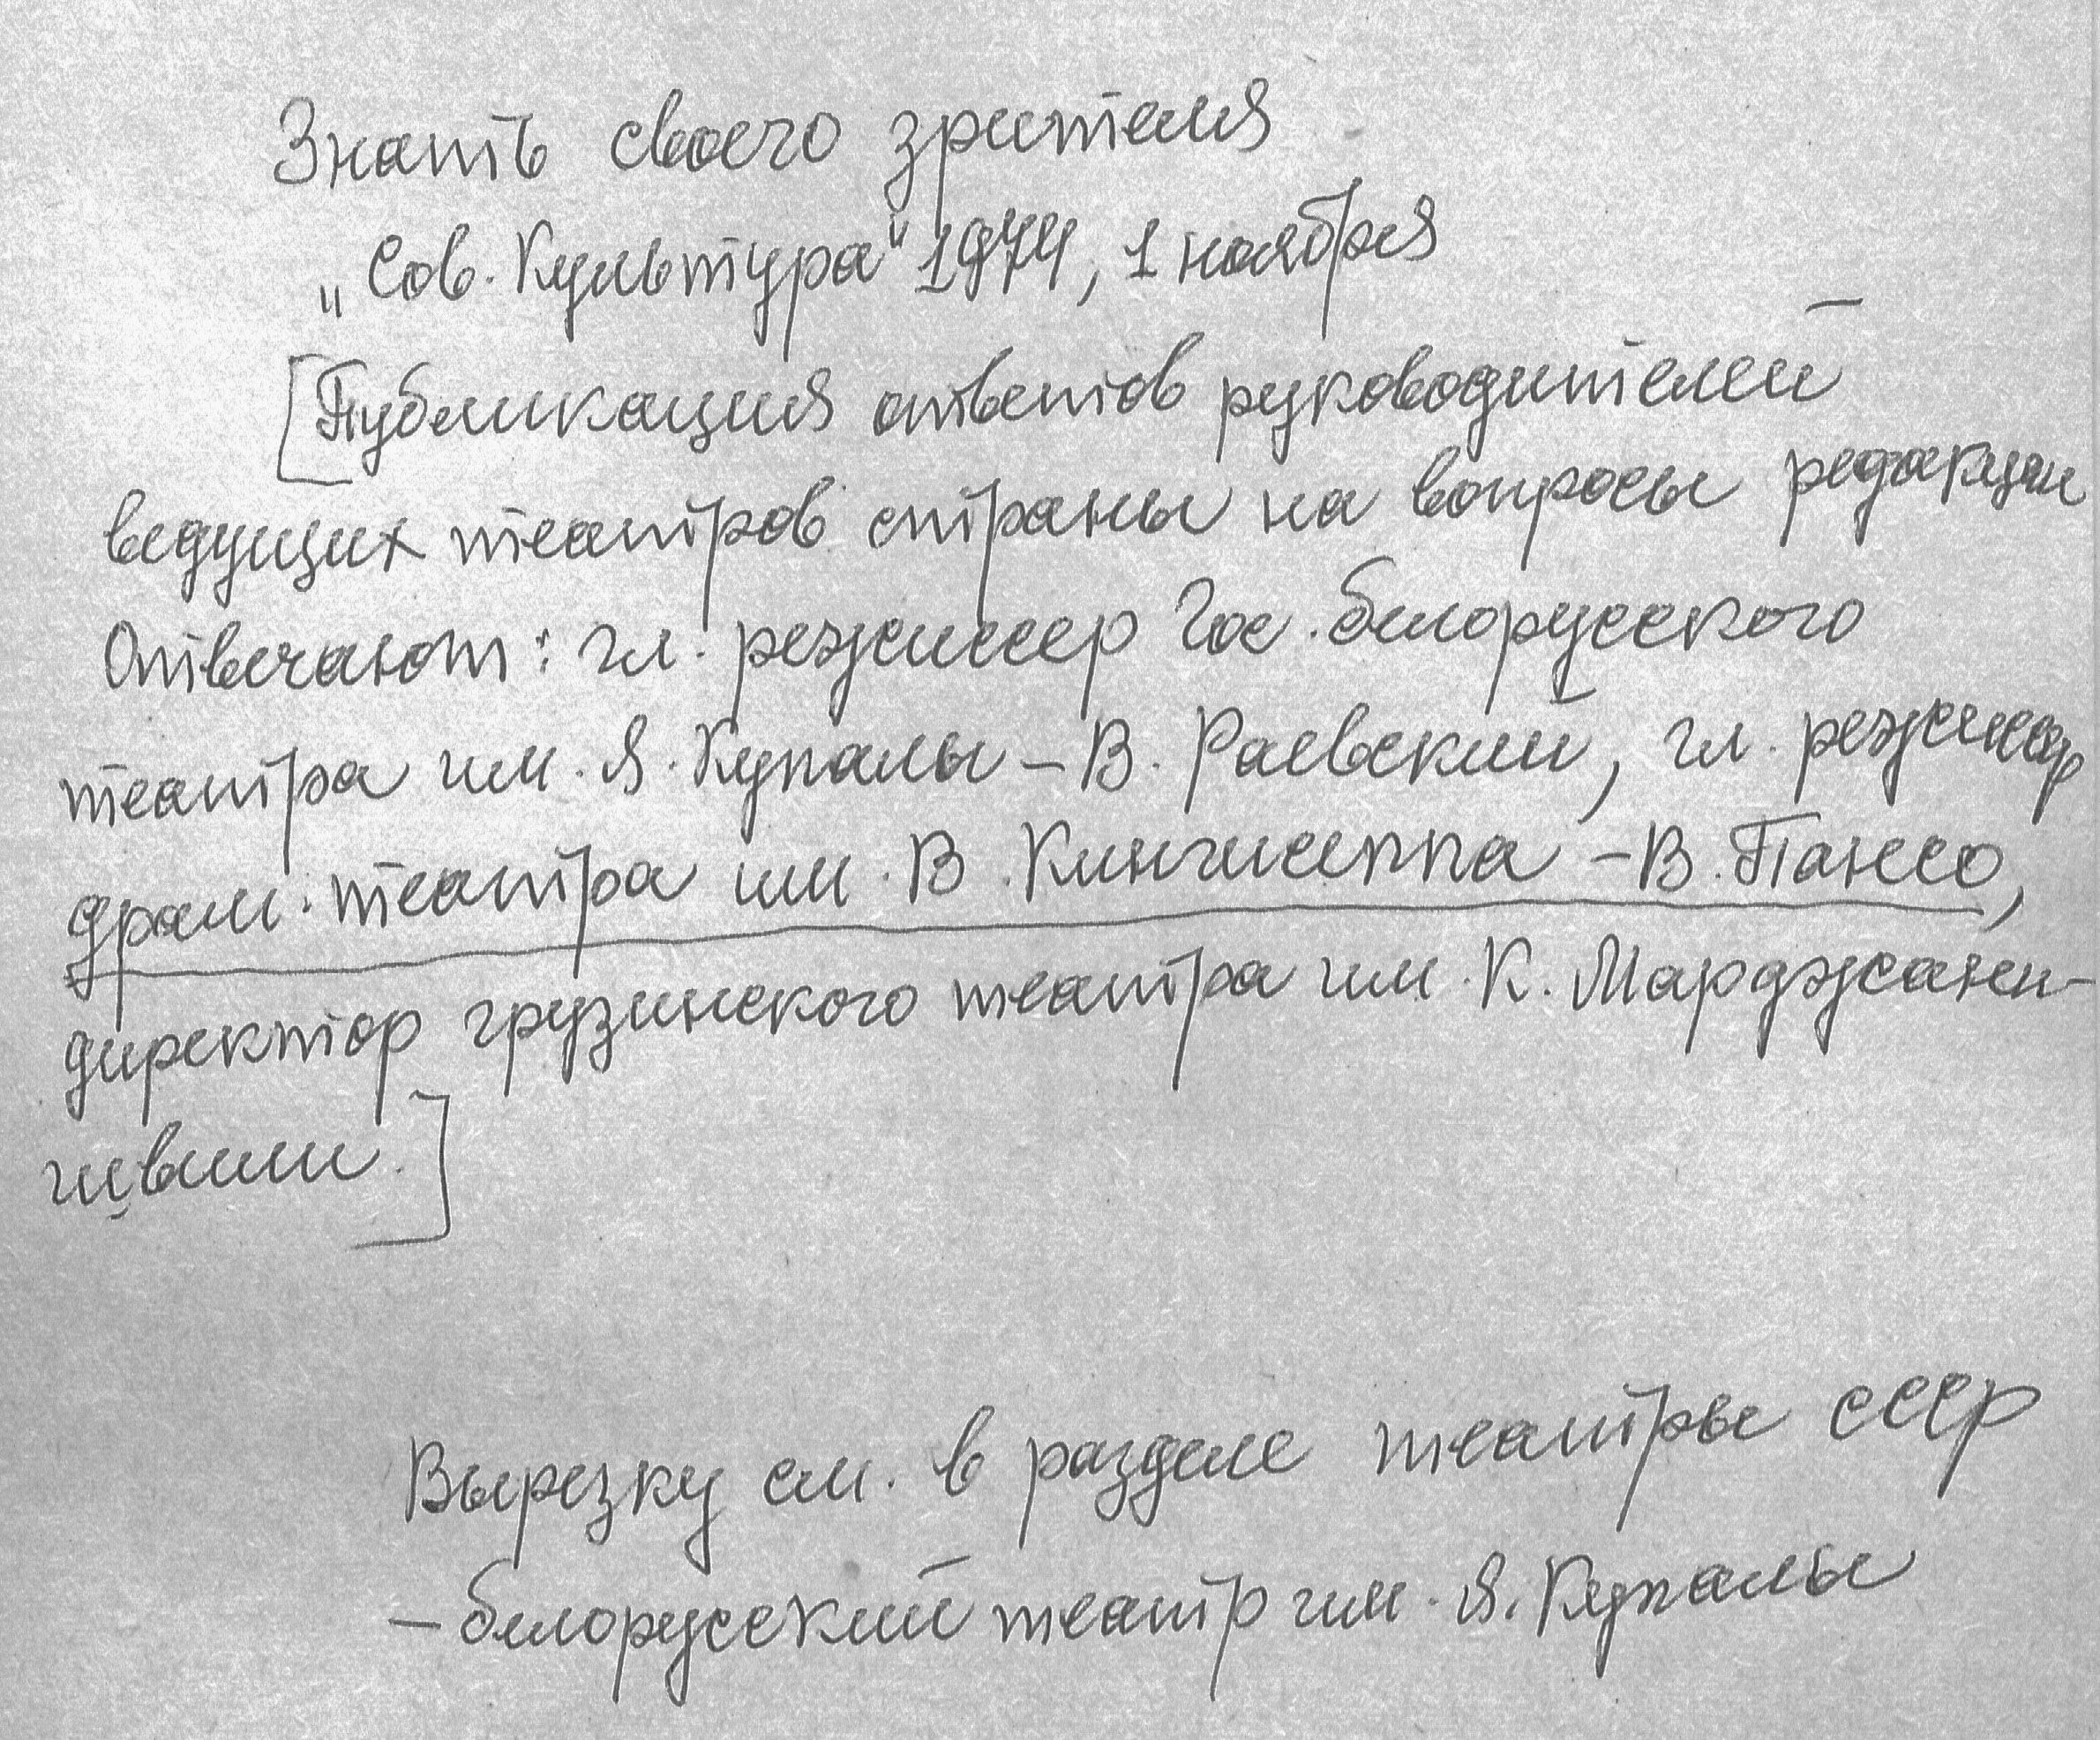 Знать своего зрителя
„Сов. Культура" 1974, 1 ноября
[Публикация ответов руководителей
ведущих театров страны на вопросы редакции
Отвечают: гл. режиссер Гос. белорусского
театра им. Я. Купалы – В. Раевский, гл. режиссер
драм. театра им. В. Кингисеппа – В. Пансо,
директор грузинского театра им. К. Марджани-
швили.]
Вырезку см. в разделе театры СССР
– белорусский театр им. Я. Купалы